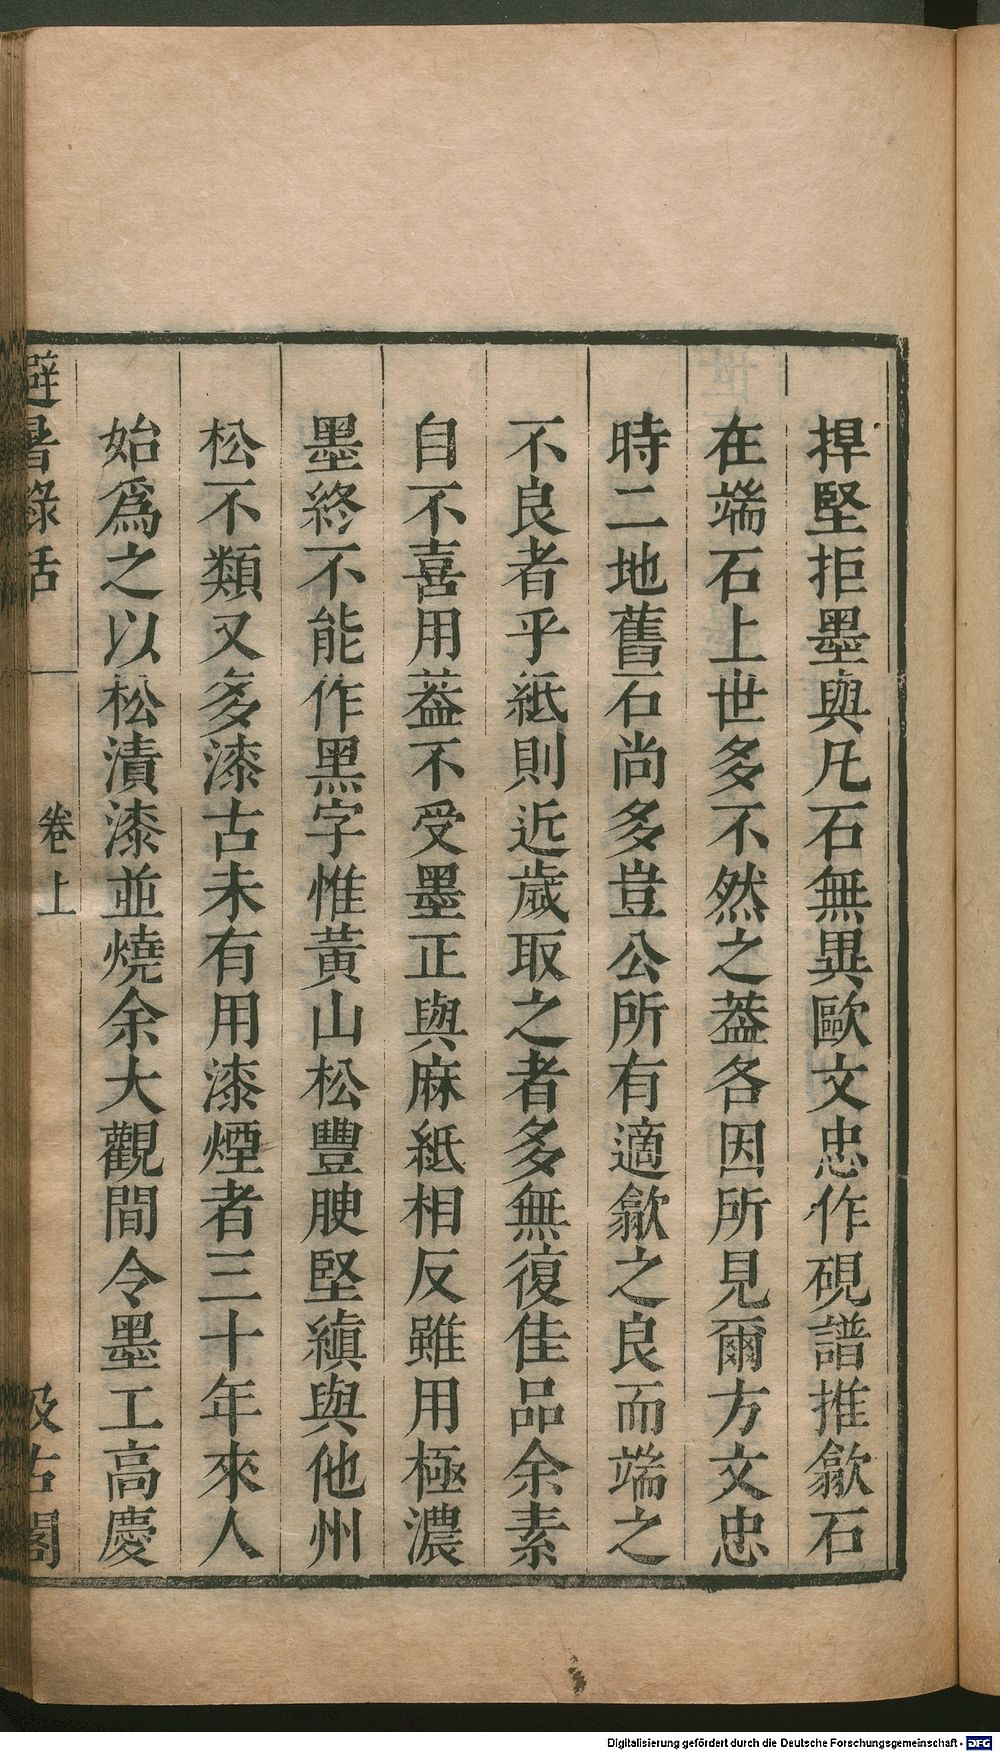 捍堅拒墨與凡石無異歐文忠作硯譜推歙石
在端石上世多不然之葢各因所見爾方文忠
時二地舊石尚多豈公所有適歙之良而端之
不良者乎紙則近歲取之者多無復佳品余素
自不喜用葢不受墨正與麻紙相反雖用極濃
墨終不能作黑字惟黃山松豐腴堅縝與他州
松不類又多漆古未有用漆煙者三十年來人
始爲之以松漬漆並燒余大觀間令墨工高慶
避暑錄話 卷上 汲古閣
Digitalisierung gefördert durch die Deutsche Forschungsgemeinschaft - DFG